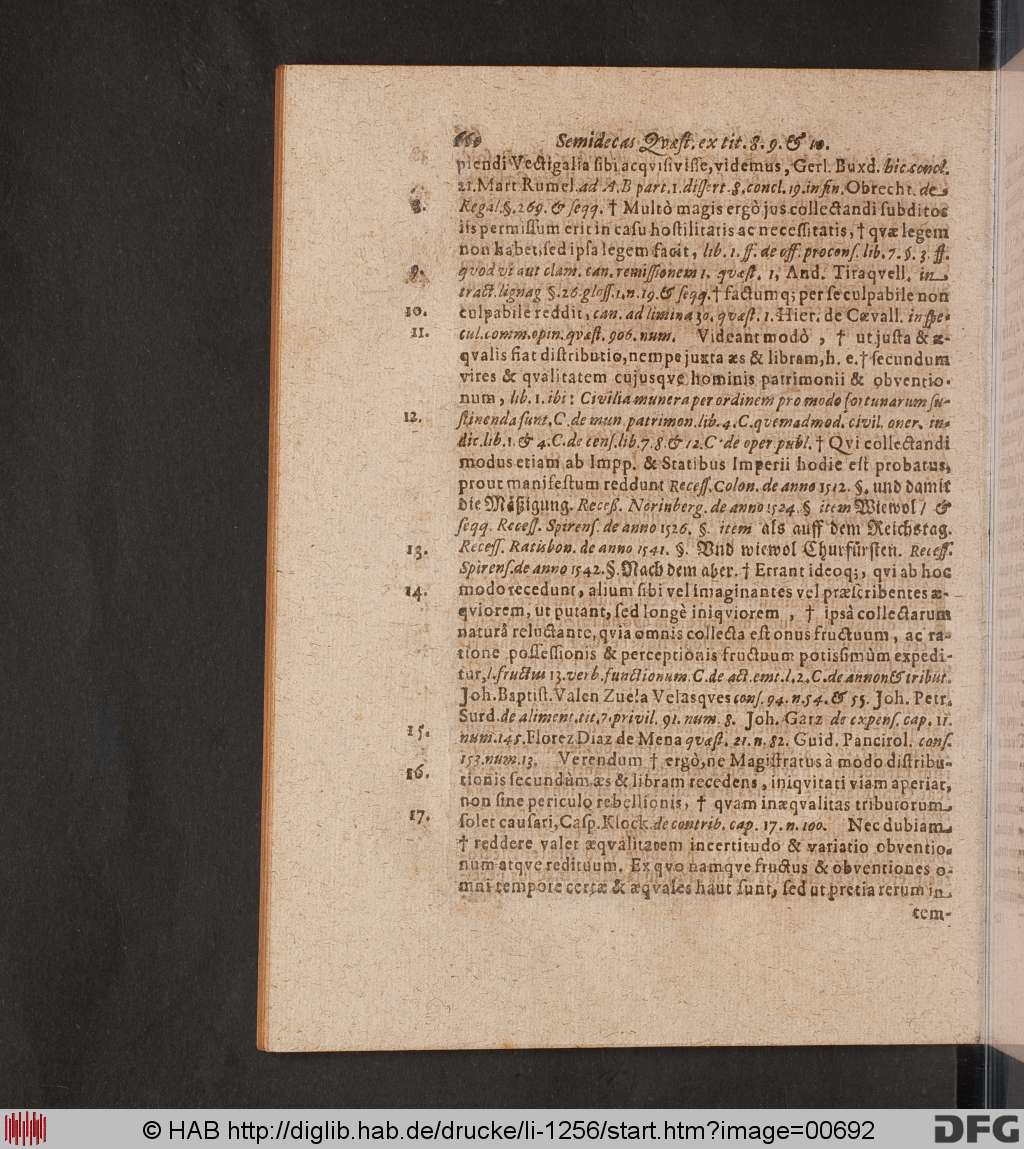 660 Semidecas Qvæst. ex tit. 8. 9. & 10.
piendi Vectigalia sibi acqvisivisse, videmus, Gerl. Buxd. hic concl.
21. Mart Rumel. ad A. B part. 1. dissert. 8. concl. 19. in fin. Obrecht. de
8. Regal. §. 269. & seqq. † Multò magis ergò jus collectandi subditos
iis permissum erit in casu hostilitatis ac necessitatis, † qvæ legem
non habet, sed ipsa legem facit, lib. 1. ff. de off. procons. lib. 7. §. 3. ff.
9. quod vi aut clam. can. remissionem 1. quæst. 1, And. Tiraqvell. in
tract. lignag §. 26 gloss. 1. n. 19. & seqq. † factumq; per se culpabile non
10. culpabile reddit, can. ad limina 30. quæst. 1. Hier. de Cævall. in spe-
11. cul. comm. opin. quæst. 906. num. Videant modò , † ut justa & æ-
qvalis fiat distributio, nempe juxta æs & libram, h. e. † secundum
vires & qvalitatem cujusqve hominis patrimonii & obventio-
num, lib. 1. ibi: Civilia munera per ordinem pro modo fortunarum su-
12. stinenda sunt. C. de mun patrimon. lib. 4. C. quemadmod. civil. oner. in-
dic. lib. 1. & 4. C. de cens. lib. 7. 8. & 12. C. de oper publ. † Qvi collectandi
modus etiam ab Impp. & Statibus Imperii hodie est probatus,
prout manifestum reddunt Recess. Colon. de anno 1512. §. und damit
die Mäßigung. Receß. Norinberg. de anno 1524. § item Wiewol / &
seqq. Recess. Spirens. de anno 1526. §. item als auff dem Reichstag.
13. Recess. Ratisbon. de anno 1541. §. Und wiewol Churfürsten. Recess.
Spirens. de anno 1542. §. Nach dem aber. † Errant ideoq;, qvi ab hoc
14. modo recedunt, alium sibi vel imaginantes vel præscribentes æ-
qviorem, ut putant, sed longè iniqviorem , † ipsâ collectarum
naturâ reluctante, qvia omnis collecta est onus fructuum, ac ra-
tione possessionis & perceptionis fructuum potissimùm expedi-
tur, l. fructus 13. verb. functionum. C. de act. emt. l. 2. C. de annon & tribut.
Joh. Baptist. Valen Zuela Velasqves cons. 94. n. 54. & 55. Joh. Petr.
Surd. de aliment. tit. 7. privil. 91. num. 8. Joh. Garz de expens. cap. 11.
15. num. 145. Florez Diaz de Mena quæst. 21. n. 82. Guid. Pancirol. cons.
153. num. 13. Verendum † ergò, ne Magistratus à modo distribu-
16. tionis secundùm æs & libram recedens, iniqvitati viam aperiat,
non sine periculo rebellionis, † qvam inæqvalitas tributorum
17. solet causari, Casp. Klock. de contrib. cap. 17. n. 100. Nec dubiam
† reddere valet æqvalitatem incertitudo & variatio obventio-
num atqve redituum. Ex qvo namqve fructus & obventiones o-
mni tempore certæ & æqvales haut sunt, sed ut pretia rerum in
tem-
© HAB http://diglib.hab.de/drucke/li-1256/start.htm?image=00692
DFG